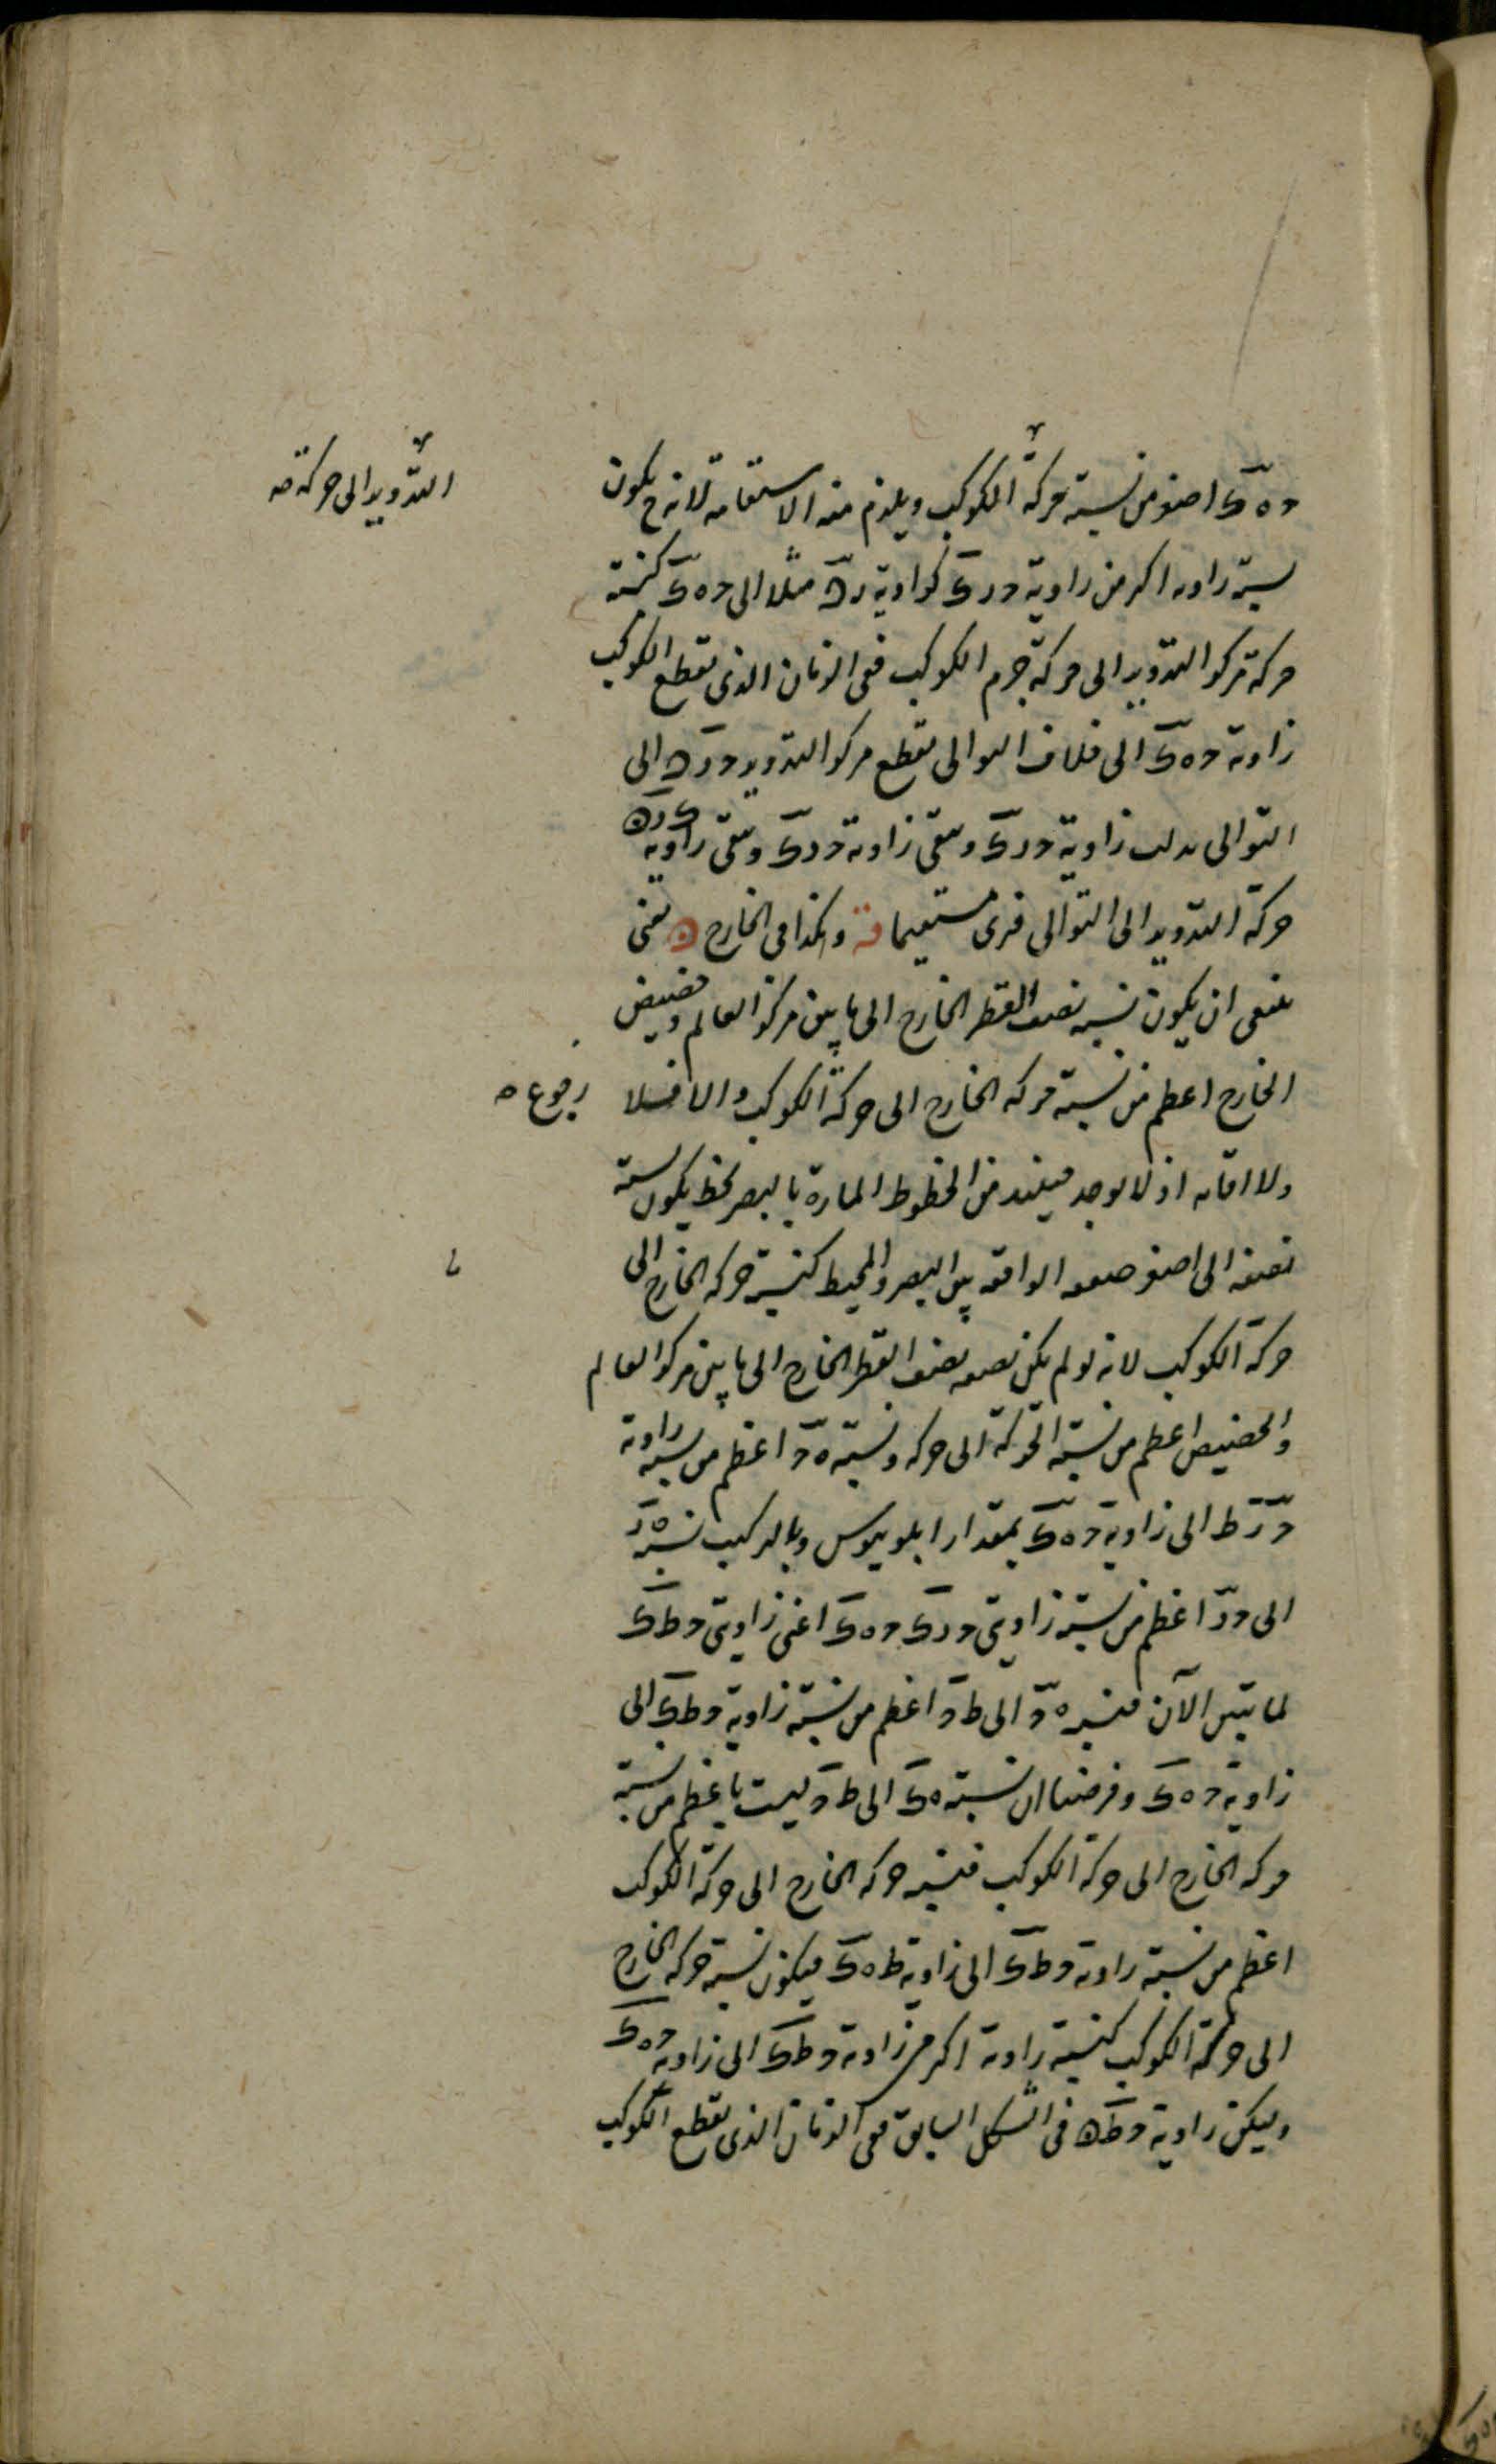 حه‍ك اصغر من نسبة حركة الكوكب ويلزم منه الاستقامة لانه ح يكون
نسبة زاوية اكبر من زاوية حرك كزاوية مثلا الى حه‍ك كنسبة
حركة مركز التدوير الى حركة جرم الكوكب ففى الزمان الذى يقطع الكوكب
زاوية حه‍ك الى خلاف التوالى يقطع مركز التدوير حرن الى
التوالى زاوية حرك وبقى زاوية حرك وبقى زاوية كرن
حركة التدوير الى التوالى فيرى مستقيما وهكذا فى الخارج يعنى
ينبغى ان يكون نسبة نصف القطر الخارج الى ما بين مركز العالم وحضيض
الخارج اعظم من نسبة حركة الخارج الى حركة الكوكب والا فلا
ولا اقامة اذ لا يوجد حينئذ من الخطوط المارة بالبصر خط يكون نسبة
نصفه الى اصغر الواقعة بين البصر والمحيط كنسبة حركة الخارج الى
حركة الكوكب لانه لو لم يكن نصف القطر الخارج الى ما بين مركز العالم
والحضيض اعظم من نسبة الحركة الى حركة ونسبة ه‍ح اعظم من نسبة زاوية
حرط الى زاوية حه‍ك بمقدار ابلونيوس وبالتركيب نسبة ه‍ر
الى حر اعظم من نسبة زاويتى حرك حه‍ك اعنى زاويتى حطك
لما تبين الآن فنسبة ه‍ح الى طح اعظم من نسبة زاوية حطك الى
زاوية حه‍ك وفرضنا ان نسبة ه‍ك الى طح ليست باعظم من نسبة
حركة الخارج الى حركة الكوكب فنسبة حركة الخارج الى حركة الكوكب
اعظم من نسبة زاوية حطك الى زاوية طه‍ك فيكون نسبة حركة الخارج
الى حركة الكوكب كنسبة زاوية اكبر من زاوية حطك الى زاوية حه‍ك
وليكن زاوية حطن فى الشكل السابق ففى الزمان الذى يقطع الكوكب
التدوير الى حركة صه
رجوع ه